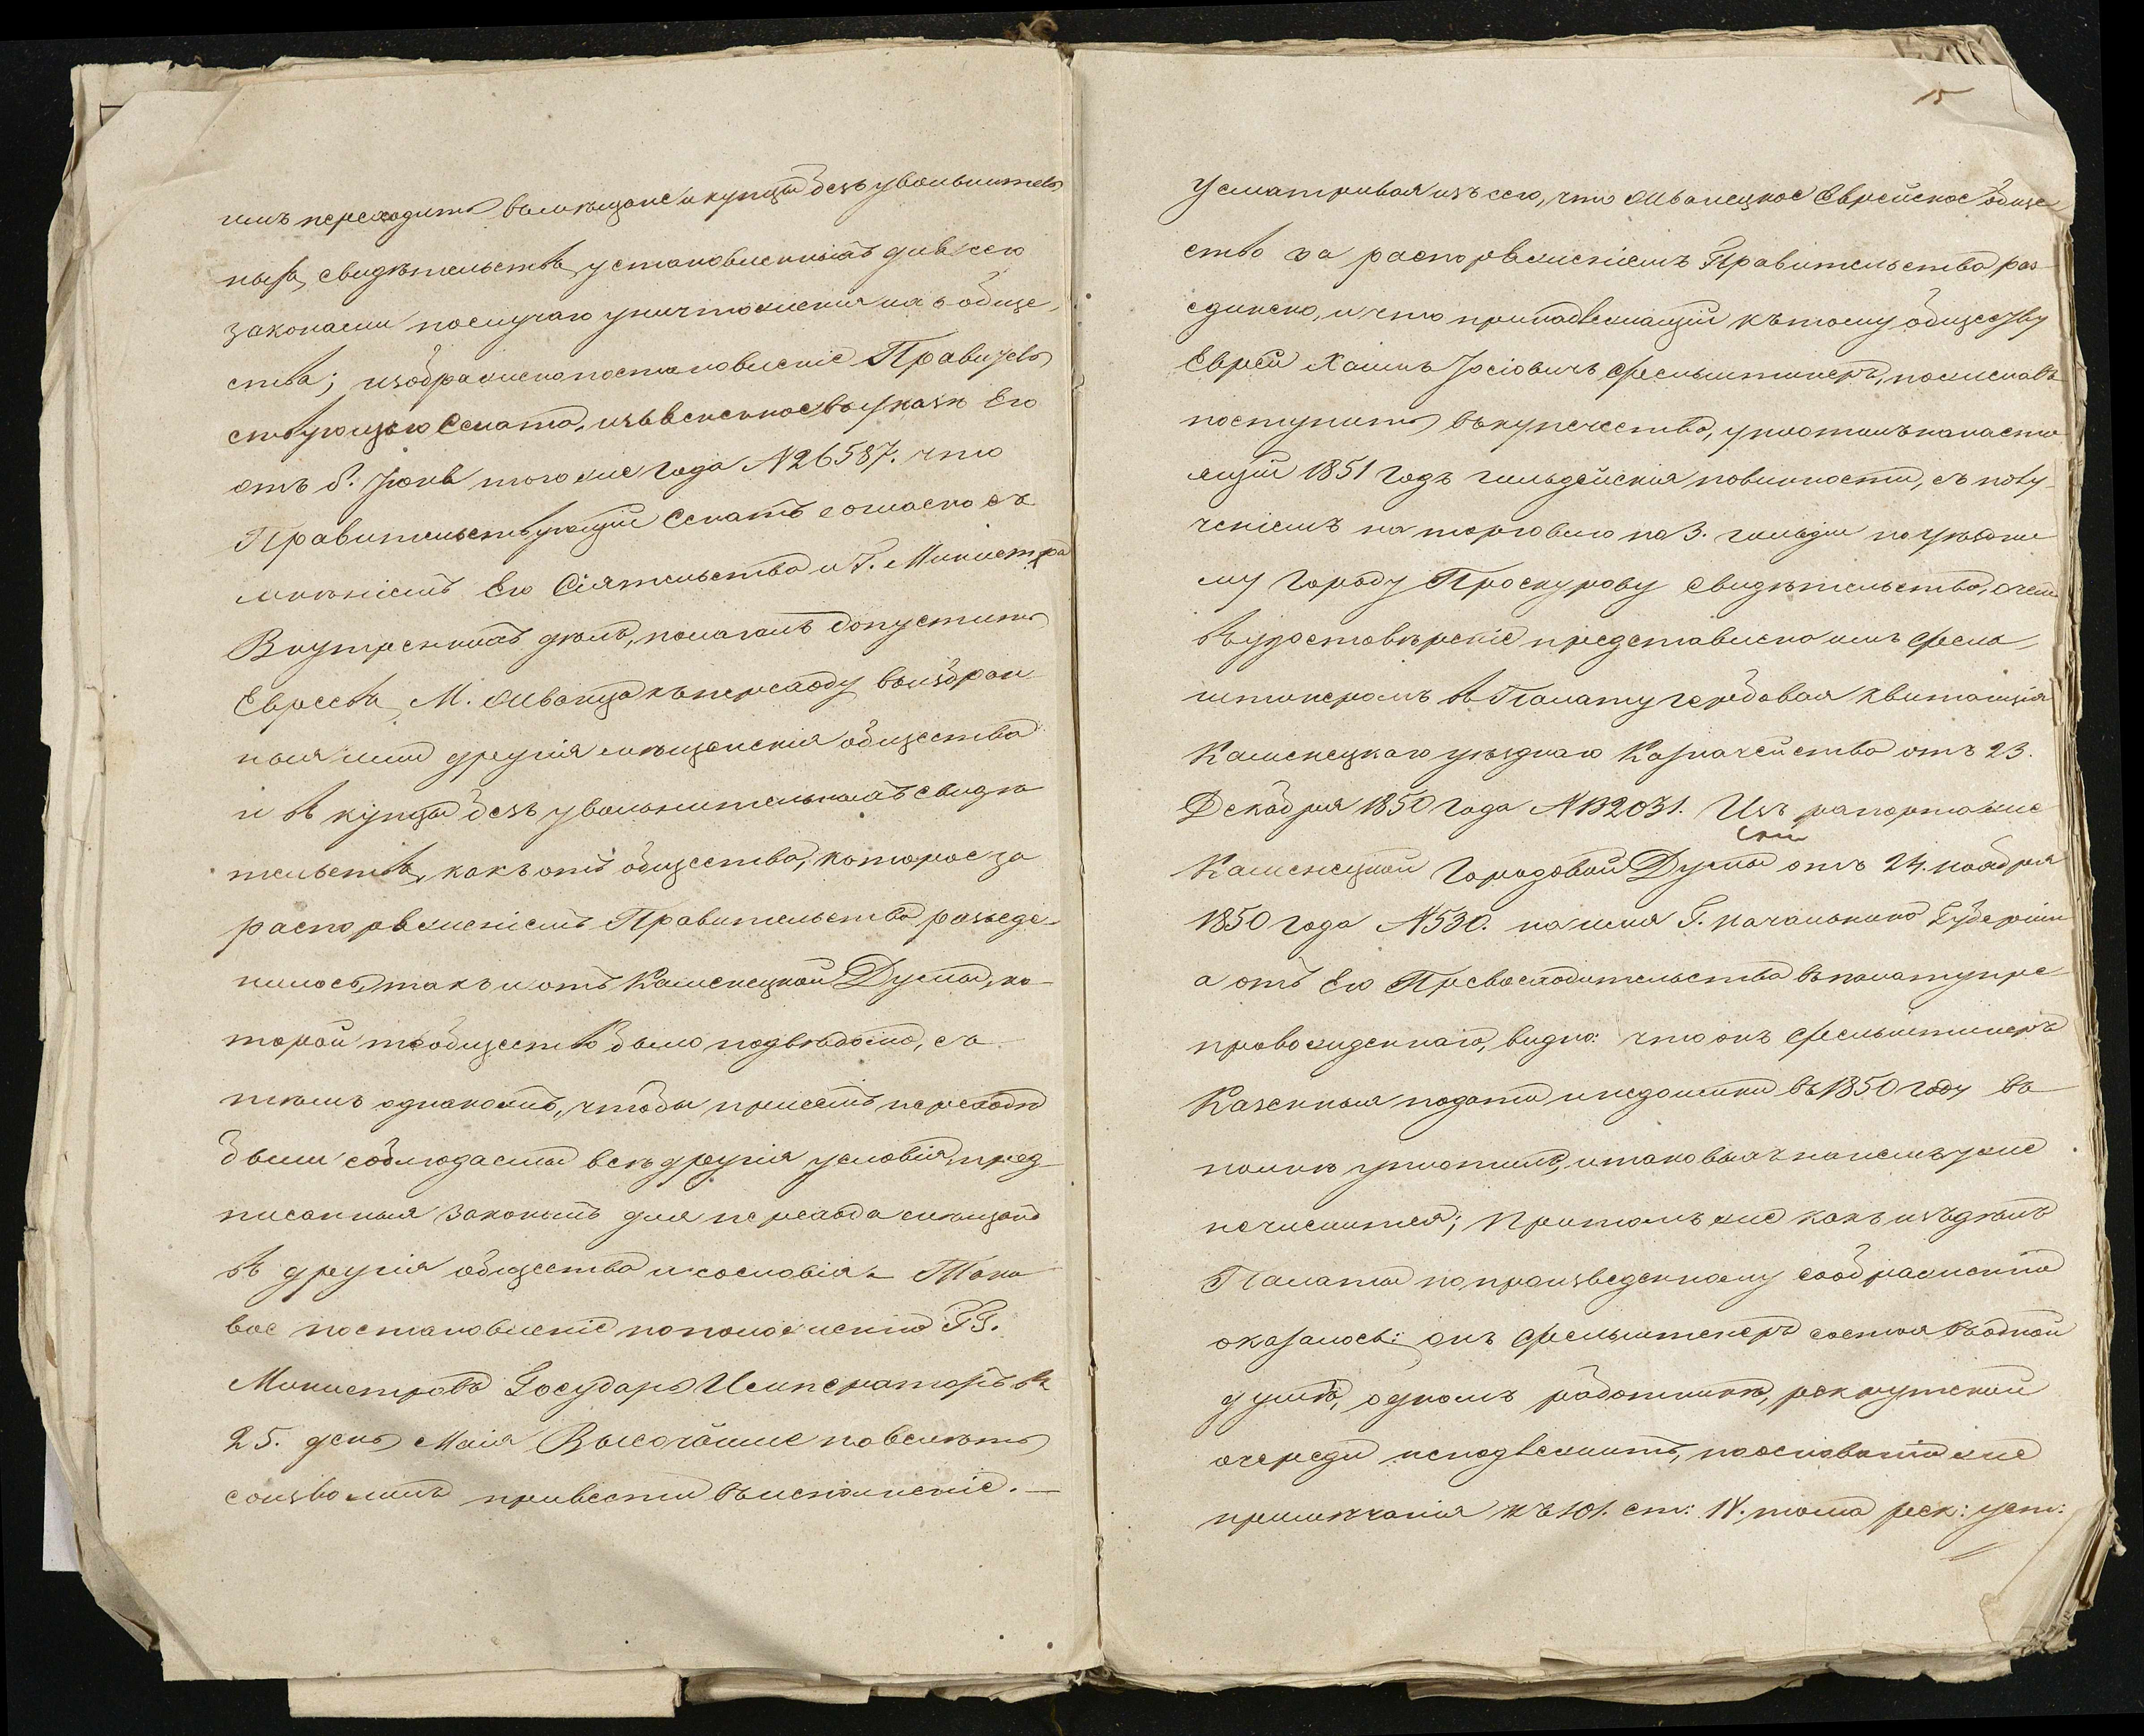 имъ переходить въ мѣщане и купцы безъ увольнитель
ныхъ свидѣтельствъ установленныхъ для сего
законами по случаю уничтоженія ихъ обще,
ства; изображено постановленіе Правитель
ствующаго Сената, изъясненное въ указѣ Его
отъ 8. Іюня того же года N 26587. что
Правительствующій Сенатъ согласно съ
мнѣніемъ Его Сіятельства и Г. Министра
Внутреннихъ дѣлъ, полагалъ допустить
Евреевъ М. Жванца къ переходу въ избран
ныя ими другія мѣщанскія общества
и въ купцы безъ увольнительныхъ свидѣ
тельствъ, какъ отъ общества, которое за
распоряженіемъ Правительства разъеде-
нилось, такъ и отъ Каменецкой Думы, ко-
торой то общество было подвѣдомо, съ
тѣмъ однакожъ, чтобы при семъ переходѣ
были соблюдаемы всѣ другія условія, пред-
писанныя закономъ для перехода мѣщанъ
въ другія общества и сословія. Тако
вое постановленіе по положенію ГГ.
Министровъ Государь Императоръ въ
25. день Маія Высочайше повелѣть
соизволилъ привести въ исполненіе. —
15
Усматривая изъ сего, что Жванецкое Еврейское обще
ство за распоряженіемъ Правительства раз-
единено, и что принадлежащій къ тому обществу
Еврей Хаимъ Іосіовичъ Фельштинеръ, пожелавъ
поступить въ купечество, уплотилъ на насто
ящій 1851 годъ гильдейскія повинности, съ полу-
ченіемъ на торговлю по 3. гильдіи по уѣздно
му городу Проскурову свидѣтельство, о чемъ
въ удостовѣреніе представлена имъ Фель-
штинеромъ въ Палату чередовая квитанція
Каменецкаго уѣзднаго Казначейства отъ 23.
Декабря 1850 года N 132031. Изъ рапорта же
Каменецкой Городовой Думы отъ 24. ноября
1850 года N 530. на имя Г. Начальника Губерніи
а отъ Его Превосходительства въ палату пре-
провожденнаго, видно: что онъ Фельштинеръ
Казенныя подати и недоимки въ 1850 году въ
полнѣ уплотилъ, и таковыхъ на немъ уже
нечислится; Притомъ же какъ изъ дѣлъ
Палаты по произведенному соображенію
оказалось: онъ Фельштенеръ состоя въ одной
душѣ, одномъ работникѣ, рекрутской
очереди неподлежитъ, на основаніи же
примѣчанія къ 101. ст: IV. тома рек: уст: